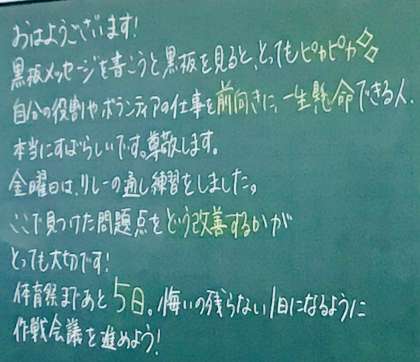 おはようございます!
黒板メッセージを書こうと黒板を見ると、とってもピカピカ✨
自分の役割やボランティアの仕事を前向きに、一生懸命できる人、
本当にすばらしいです。尊敬します。
金曜日は、リレーの通し練習をしました。
ここで見つけた問題点をどう改善するかが
とっても大切です!
体育祭まであと5日。悔いの残らない1日になるように
作戦会議を進めよう!